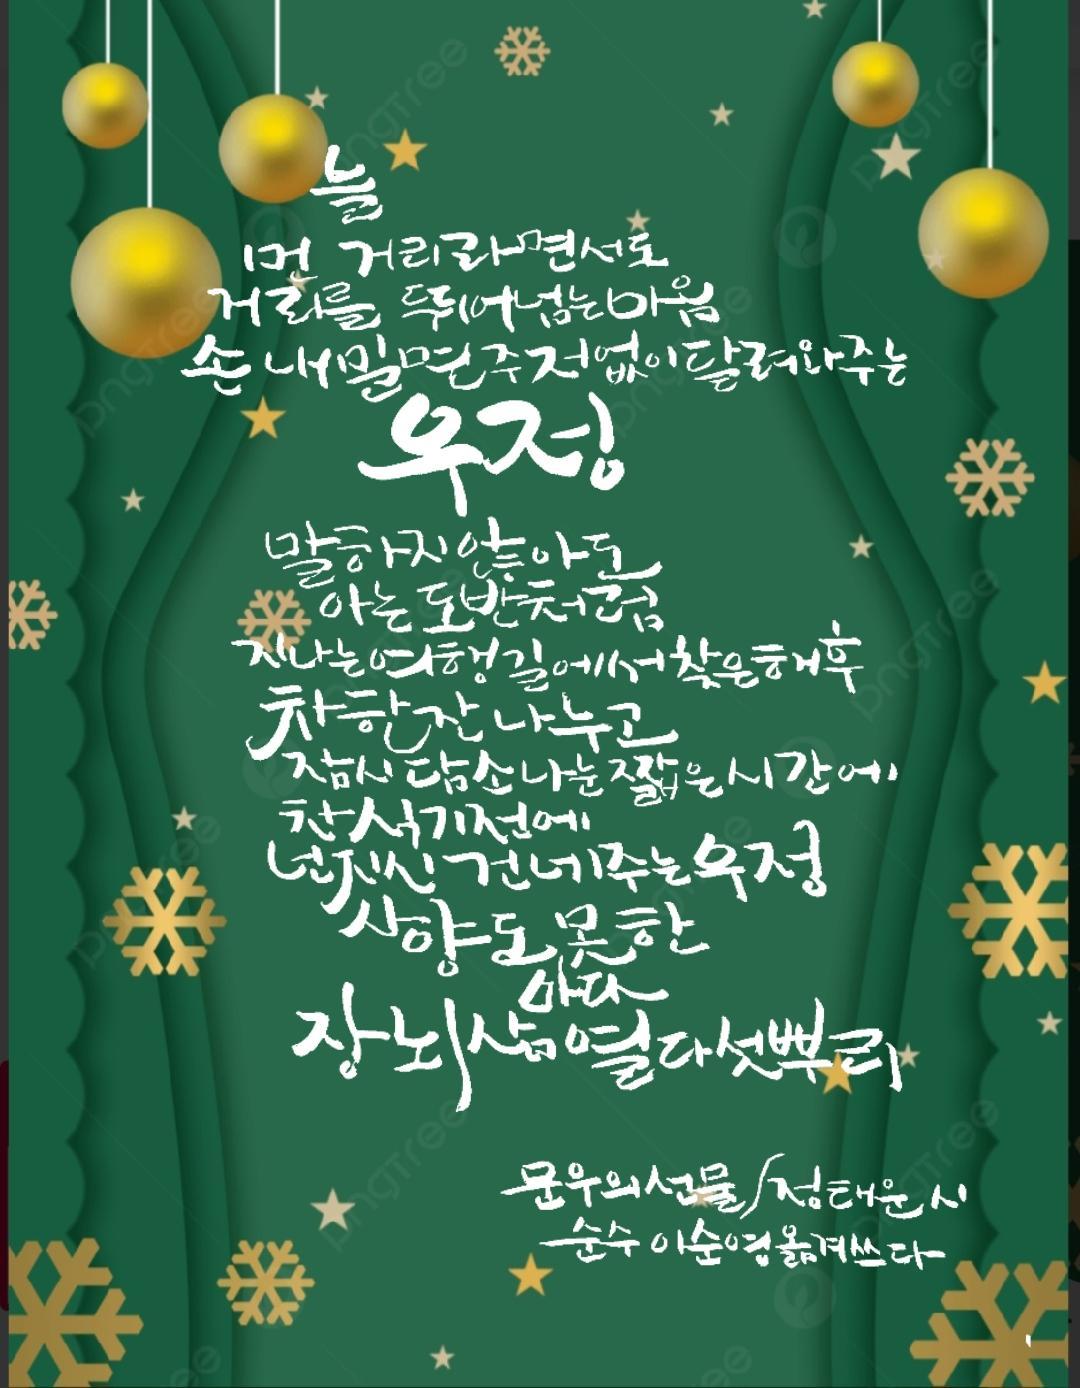 늘
먼 거리라면서도
거리를 뛰어넘는 마음
손 내밀면 주저없이 달려와 주는
우정
말하지 않아도
아는 도반처럼
지나는 여행길에서 찾은 해후
차 한 잔 나누고
잠시 담소 나눈 짧은 시간에
착석기 전에
넌지시 건네주는 우정
사양도 못한
마다
장뇌삼 열다섯 뿌리
문우의 선물/정태운 시
순수 이순영 옮겨쓰다
pngtree